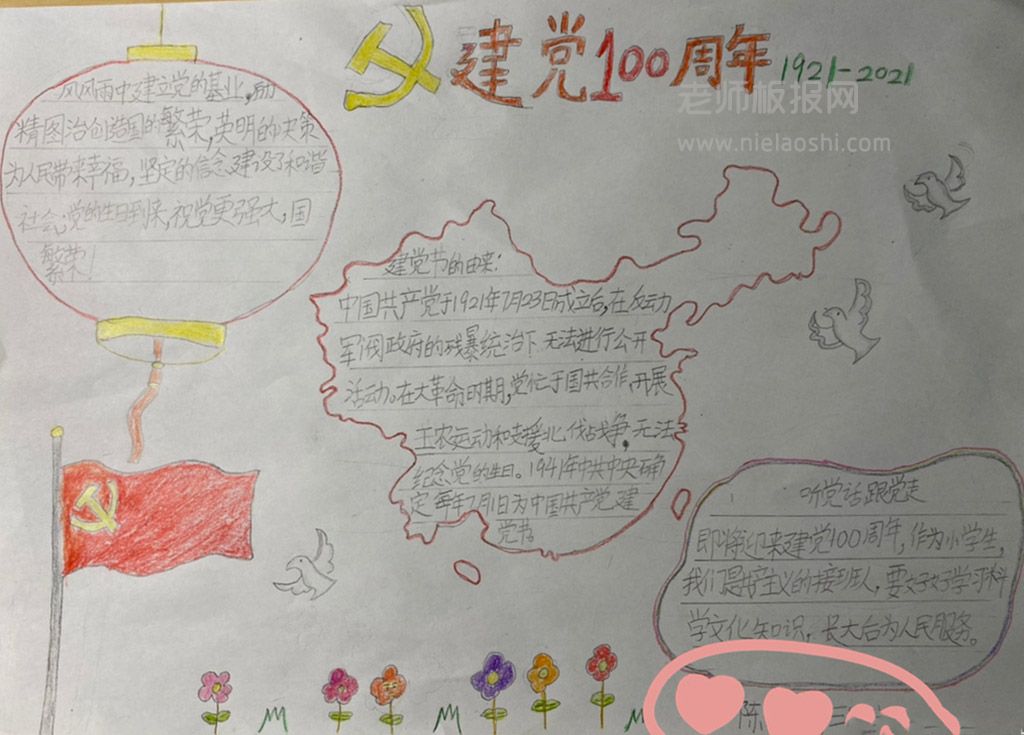 建党100周年 1921-2021
老师板报网
www.nielaoshi.com
风风雨中建立党的基业,励
精图治创造国的繁荣,英明的决策
为人民带来幸福,坚定的信念建设了和谐
社会,党的生日到来,祝党更强大,国
繁荣!
建党节的由来:
中国共产党于1921年7月23日成立后,在反动
军阀政府的残暴统治下无法进行公开
活动。在大革命时期,党忙于国共合作,开展
工农运动和支援北伐战争,无法
纪念党的生日。1941年中共中央确
定每年7月1日为中国共产党建
党节
听党话跟党走
即将迎来建党100周年,作为小学生,
我们是共产主义的接班人,要好好学习科
学文化知识,长大后为人民服务。
陈 三